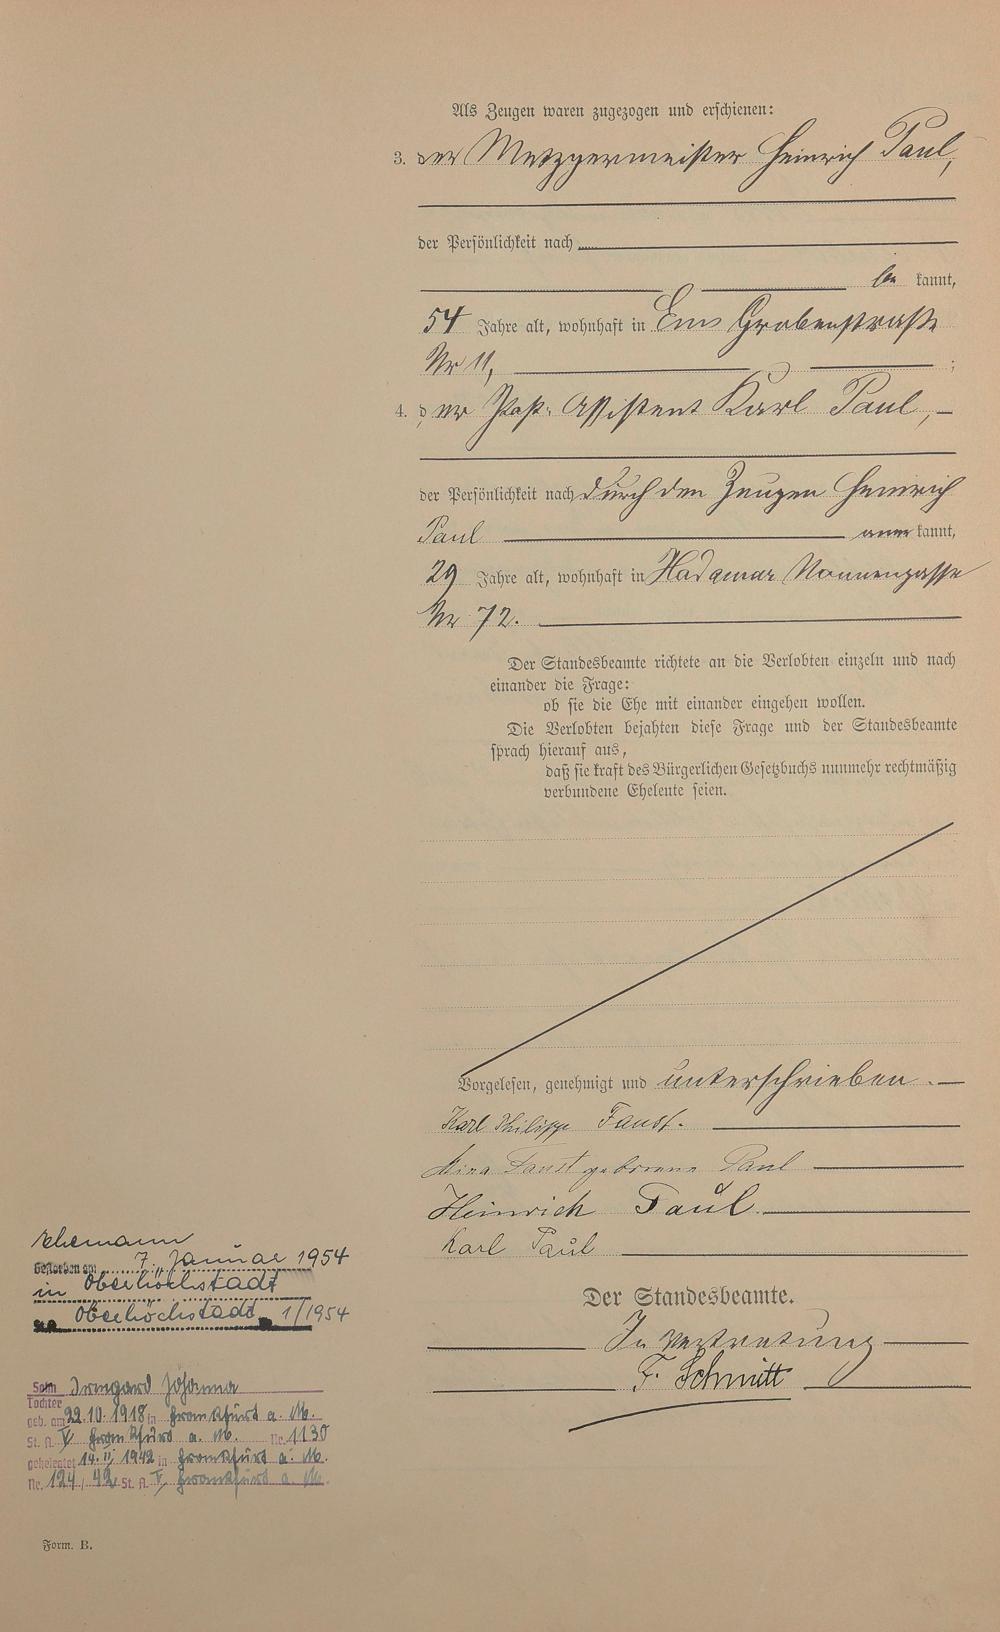 Als Zeugen waren zugezogen und erschienen:
3. der Metzgermeister Heinrich Paul,
der Persönlichkeit nach
be kannt,
54 Jahre alt, wohnhaft in Ems Grabenstraße
Nr 11, ;
4. der Post-Assistent Karl Paul,
der Persönlichkeit nach durch den Zeugen Heinrich
Paul aner kannt,
29 Jahre alt, wohnhaft in Hadamar Nonnengasse
Nr 72.
Der Standesbeamte richtete an die Verlobten einzeln und nach
einander die Frage:
ob sie die Ehe mit einander eingehen wollen.
Die Verlobten bejahten diese Frage und der Standesbeamte
sprach hierauf aus,
daß sie kraft des Bürgerlichen Gesetzbuchs nunmehr rechtmäßig
verbundene Eheleute seien.
Vorgelesen, genehmigt und unterschrieben.
Karl Philipp Faust.
Mina Faust geborene Paul
Heinrich Paul.
Karl Paul
Der Standesbeamte.
In Vertretung
F. Schmitt
Ehemann
gestorben am 7. Januar 1954
in Oberhöchstadt
St.A. Oberhöchstadt 1/1954
Sohn Irmgard Johanna
Tochter
geb. am 22.10.1918 in Frankfurt a. M.
St. A. V Frankfurt a. M. Nr. 1130
geheiratet 14. II. 1942 in Frankfurt a. M.
Nr. 124/42 St. A. V Frankfurt a. M.
Form. B.